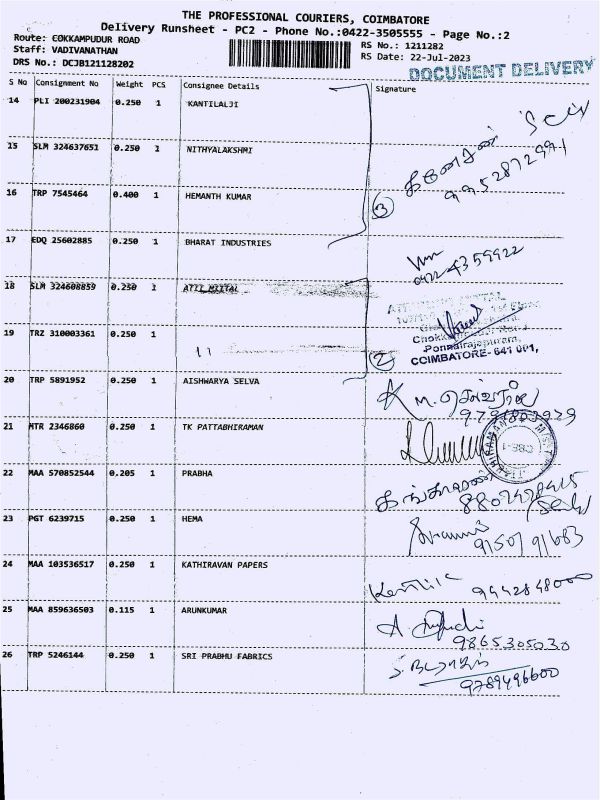 THE PROFESSIONAL COURIERS, COIMBATORE
Delivery Runsheet - PC2 - Phone No.:0422-3505555 - Page No.:2
Route: COKKAMPUDUR ROAD
RS No.: 1211282
Staff: VADIVANATHAN
RS Date: 22-Jul-2023
DRS No.: DCJB121128202
DOCUMENT DELIVERY
S No Consignment No Weight PCS Consignee Details Signature
14 PLI 200231904 0.250 1 KANTILALJI
15 SLM 324637651 0.250 1 NITHYALAKSHMI
9952872991
16 TRP 7545464 0.400 1 HEMANTH KUMAR
3
17 EDQ 25602885 0.250 1 BHARAT INDUSTRIES
0422 4359922
18 SLM 324608859 0.250 1 ATTI MITTAL
19 TRZ 310003361 0.250 1 11
Ponnairajapuram,
COIMBATORE- 641 001,
2
20 TRP 5891952 0.250 1 AISHWARYA SELVA
K M. செல்வராஜ்
9791803929
21 MTR 2346860 0.250 1 TK PATTABHIRAMAN
22 MAA 570852544 0.205 1 PRABHA
23 PGT 6239715 0.250 1 HEMA
9150791683
24 MAA 103536517 0.250 1 KATHIRAVAN PAPERS
9442848000
25 MAA 859636503 0.115 1 ARUNKUMAR
9865305030
26 TRP 5246144 0.250 1 SRI PRABHU FABRICS
9789496600